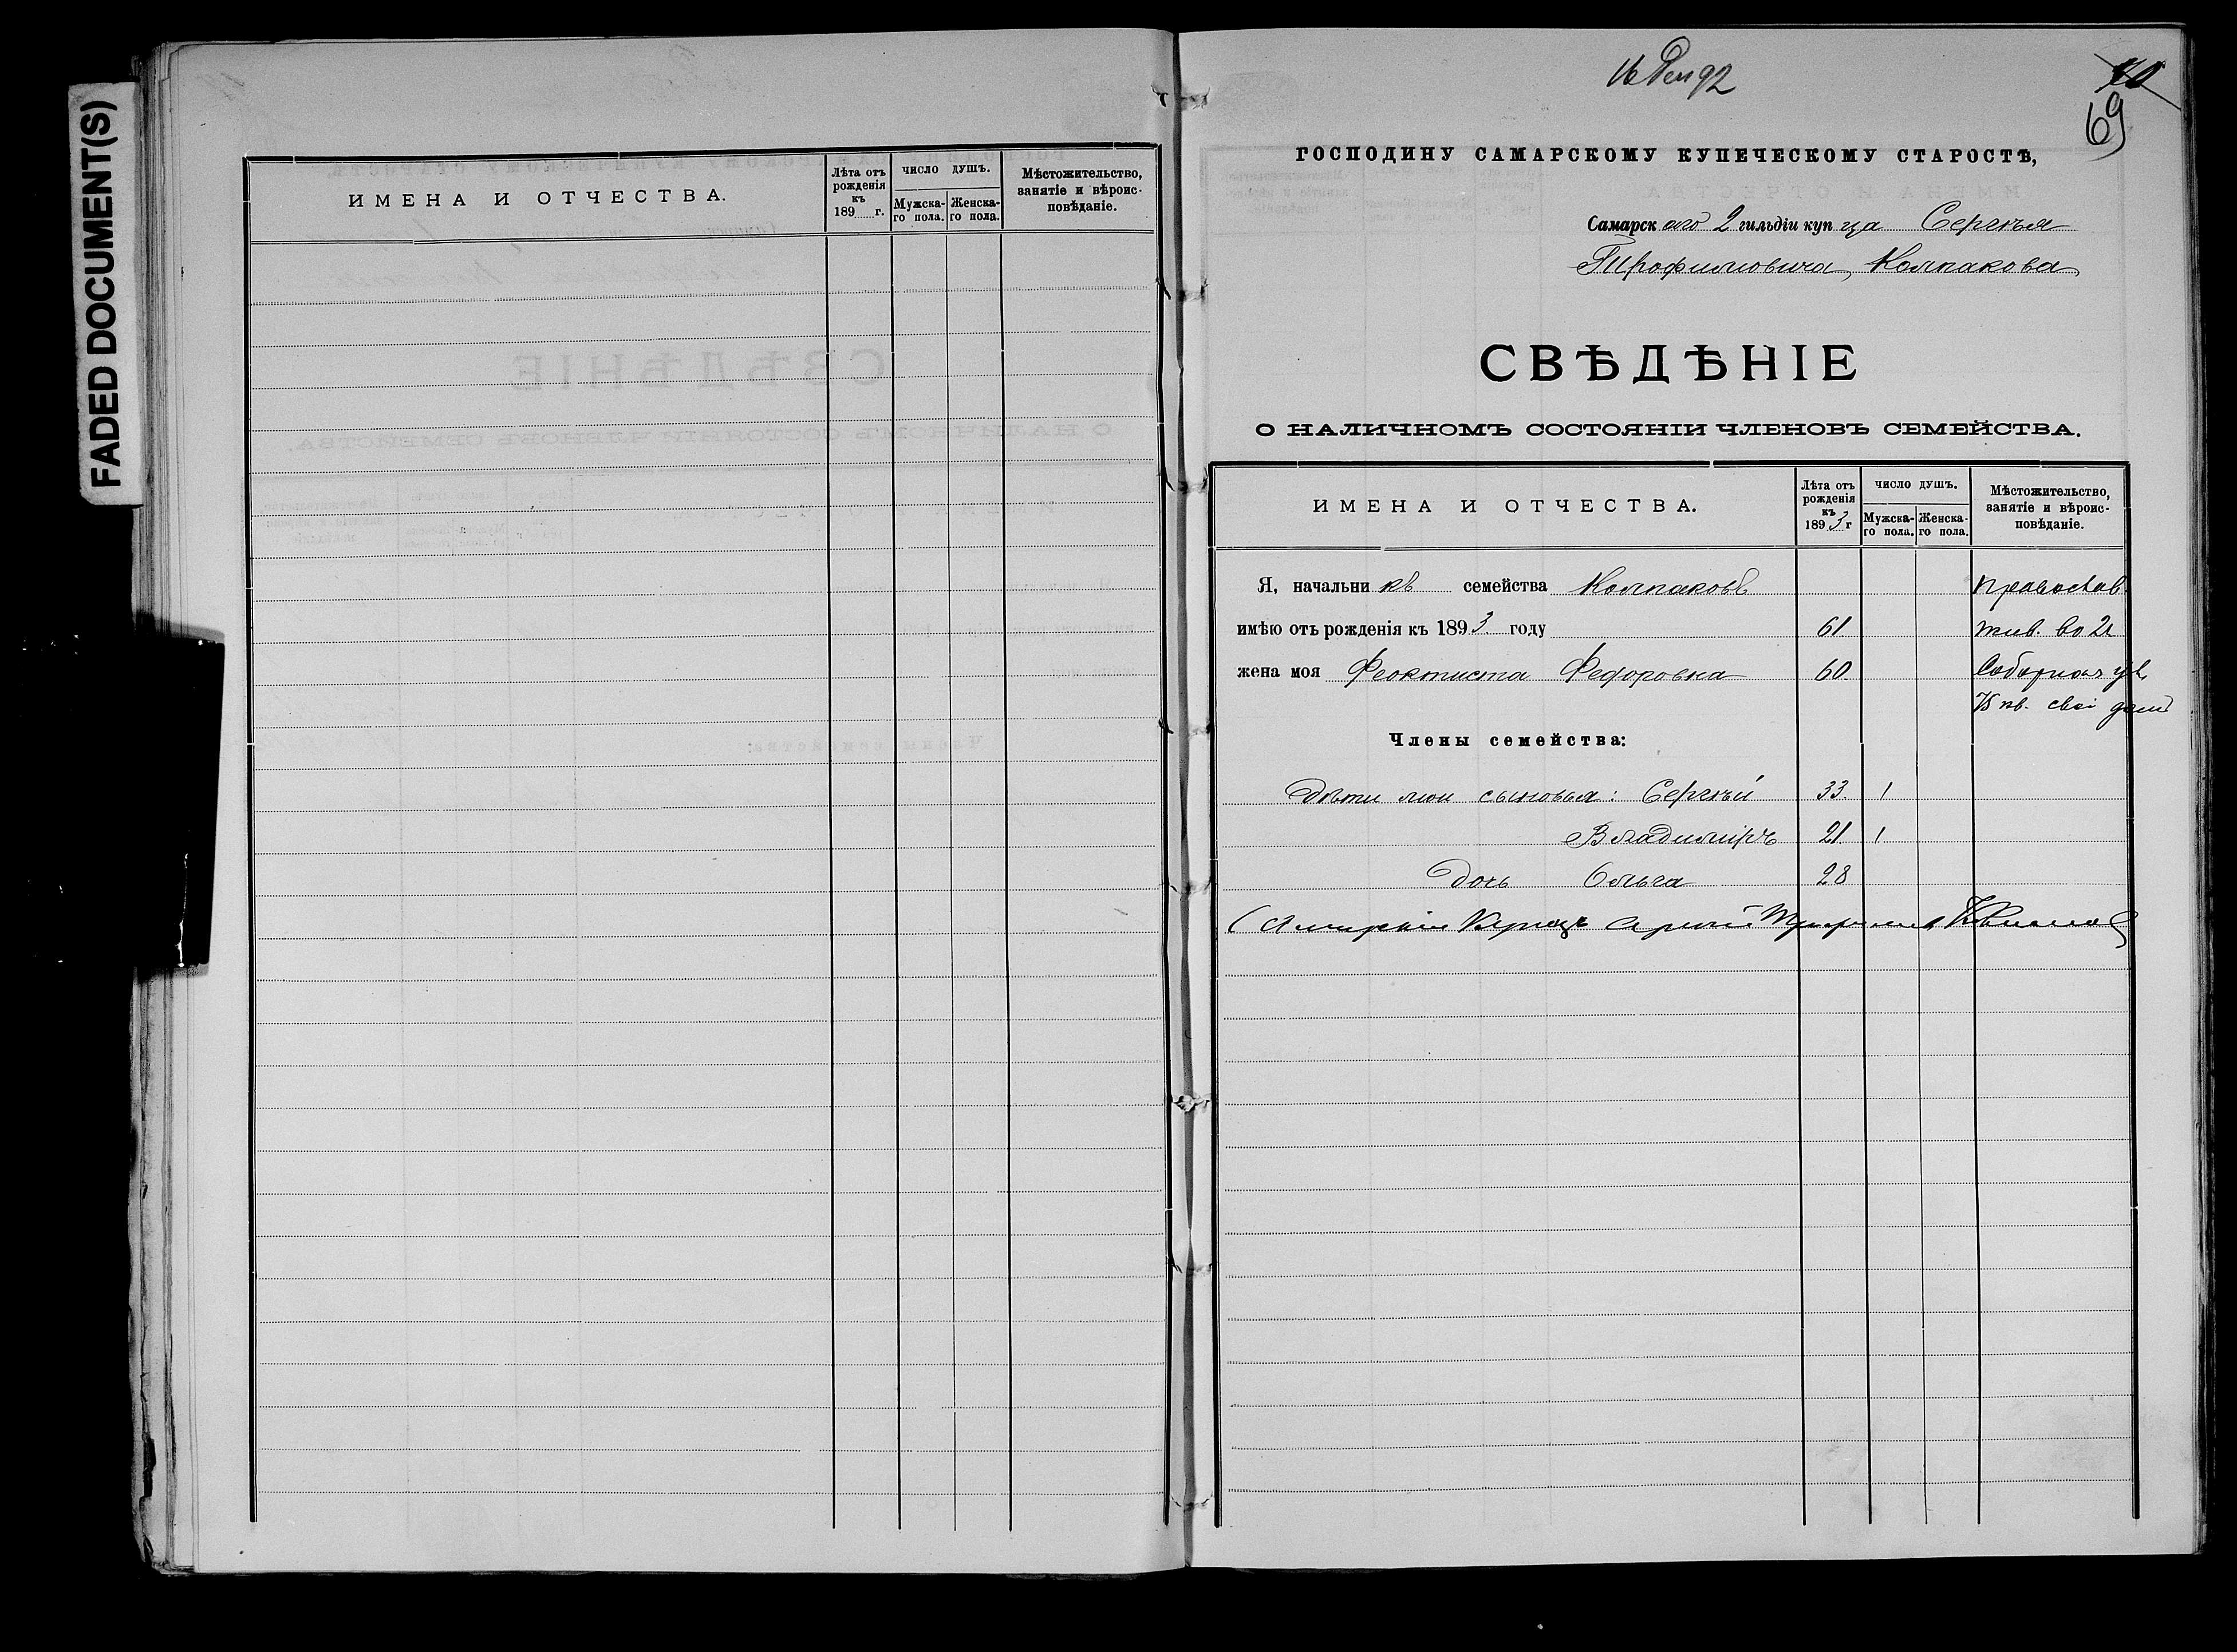 FADED DOCUMENT(S)
ИМЕНА И ОТЧЕСТВА.
Лѣта отъ рожденія къ 189 г.
ЧИСЛО ДУШЪ.
Мужскаго пола.
Женскаго пола.
Мѣстожительство, занятіе и вѣроисповѣданіе.
16 Дек 92
69
ГОСПОДИНУ САМАРСКОМУ КУПЕЧЕСКОМУ СТАРОСТѢ,
Самарскаго 2 гильдіи купца Сергѣя
Трофимовича Колпакова
СВѢДѢНІЕ
О НАЛИЧНОМЪ СОСТОЯНІИ ЧЛЕНОВЪ СЕМЕЙСТВА.
ИМЕНА И ОТЧЕСТВА.
Лѣта отъ рожденія къ 1893 г
ЧИСЛО ДУШЪ.
Мужскаго пола.
Женскаго пола.
Мѣстожительство, занятіе и вѣроисповѣданіе.
Я, начальникъ семейства Колпаковъ православ
имѣю отъ рожденія къ 1893 году 61 жив. во 2й
жена моя Феоктиста Федоровна 60 Соборная ул
кв. свой домъ
Члены семейства:
Дѣти мои сыновья: Сергѣй 33. 1
Владимиръ 21. 1
дочь Ольга 28
Самарскій Купецъ Сергѣй Трофимов Колпаков